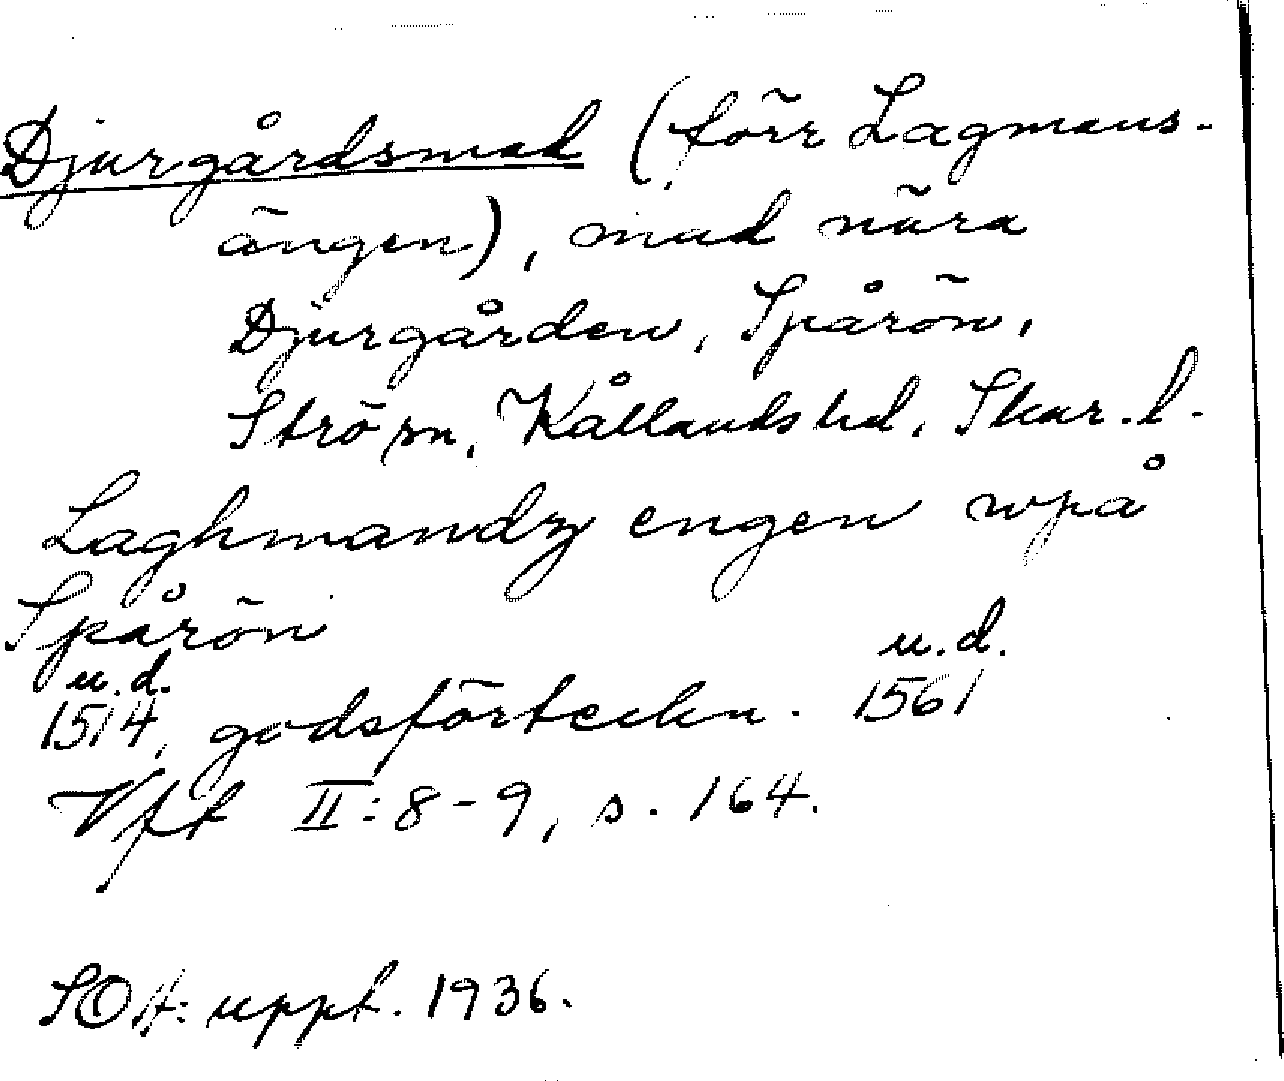 Djurgårdsmad (förr Lagmans-
ängen), mad nära
Djurgården, Spårön,
Strö sn, Kållands hd, Skar. l.
Laghmandz engen wpå
Spårön
u.d. u.d.
1514, godsförteckn. 1561
Vft II:8-9, s. 164.
SOA: uppt. 1936.